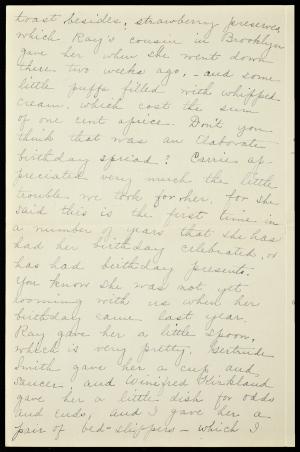 toast besides, strawberry preserves
which Ray's cousin in Brooklyn
gave her when she went down
there two weeks ago, - and some
little puffs filled with whipped
cream, which cost the sum
of one cent apiece. Don't you
think that was an elaborate
birthday spread? Carrie ap-
preciates very much the little
trouble we took for her, for she
said this is the first time in
a number of years that she has
had her birthday celebrated, or
has had birthday presents.
You know she was not yet
rooming with us when her
birthday came last year.
Ray gave her a little spoon,
which is very pretty. Gertrude
Smith gave her a cup and
saucer; and Winifred Kirkland
gave her a little dish for odds
and ends; and I gave her a
pair of bed-slippers - which I